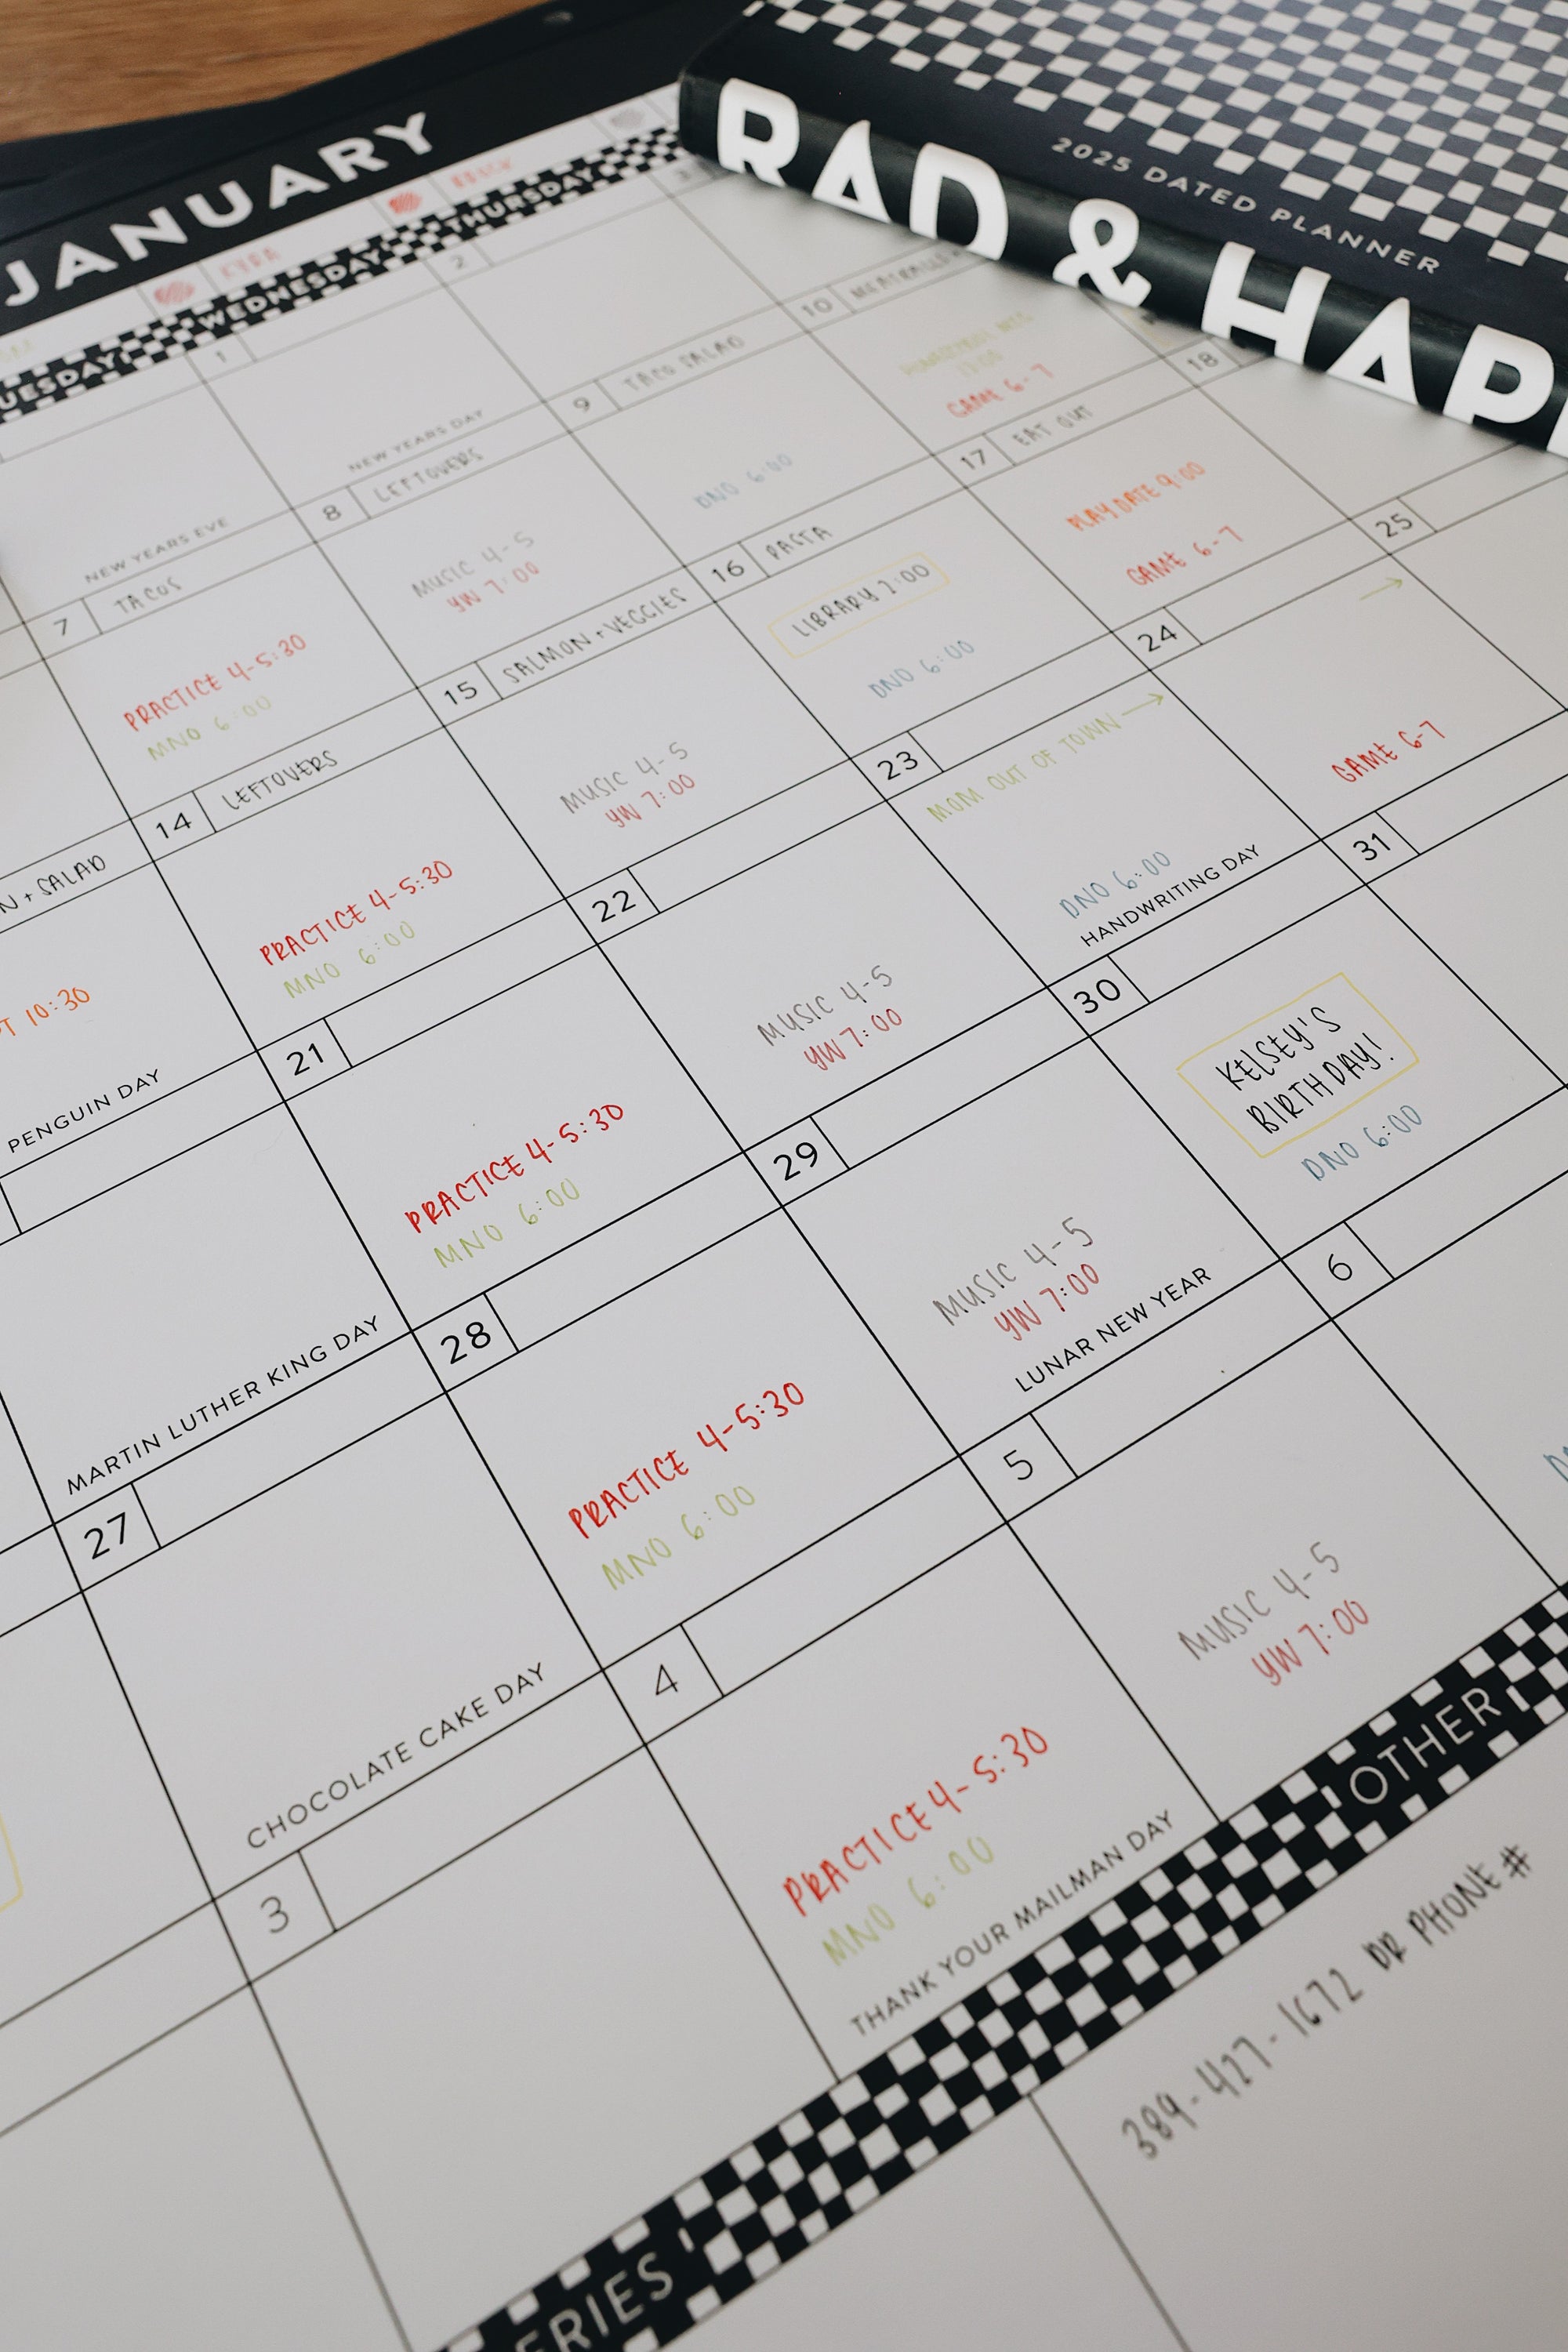 JANUARY
RAD & HAP
2025 DATED PLANNER
UESDAY
WEDNESDAY
THURSDAY
KYRA
1
2
3
NEW YEARS EVE
NEW YEARS DAY
7
TACOS
PRACTICE 4-5:30
MNO 6:00
8
LEFTOVERS
MUSIC 4-5
YW 7:00
9
TACO SALAD
DNO 6:00
10
GAME 6-7
N + SALAD
T 10:30
PENGUIN DAY
14
LEFTOVERS
PRACTICE 4-5:30
MNO 6:00
15
SALMON + VEGGIES
MUSIC 4-5
YW 7:00
16
PASTA
LIBRARY 7:00
DNO 6:00
17
EAT OUT
PLAY DATE 9:00
GAME 6-7
18
MARTIN LUTHER KING DAY
21
PRACTICE 4-5:30
MNO 6:00
22
MUSIC 4-5
YW 7:00
23
MOM OUT OF TOWN →
DNO 6:00
HANDWRITING DAY
24
→
GAME 6-7
25
27
CHOCOLATE CAKE DAY
28
PRACTICE 4-5:30
MNO 6:00
29
MUSIC 4-5
YW 7:00
LUNAR NEW YEAR
30
KELSEY'S
BIRTHDAY!
DNO 6:00
31
3
4
PRACTICE 4-5:30
MNO 6:00
THANK YOUR MAILMAN DAY
5
MUSIC 4-5
YW 7:00
6
D
ERIES
OTHER
389-427-1672 DR PHONE #